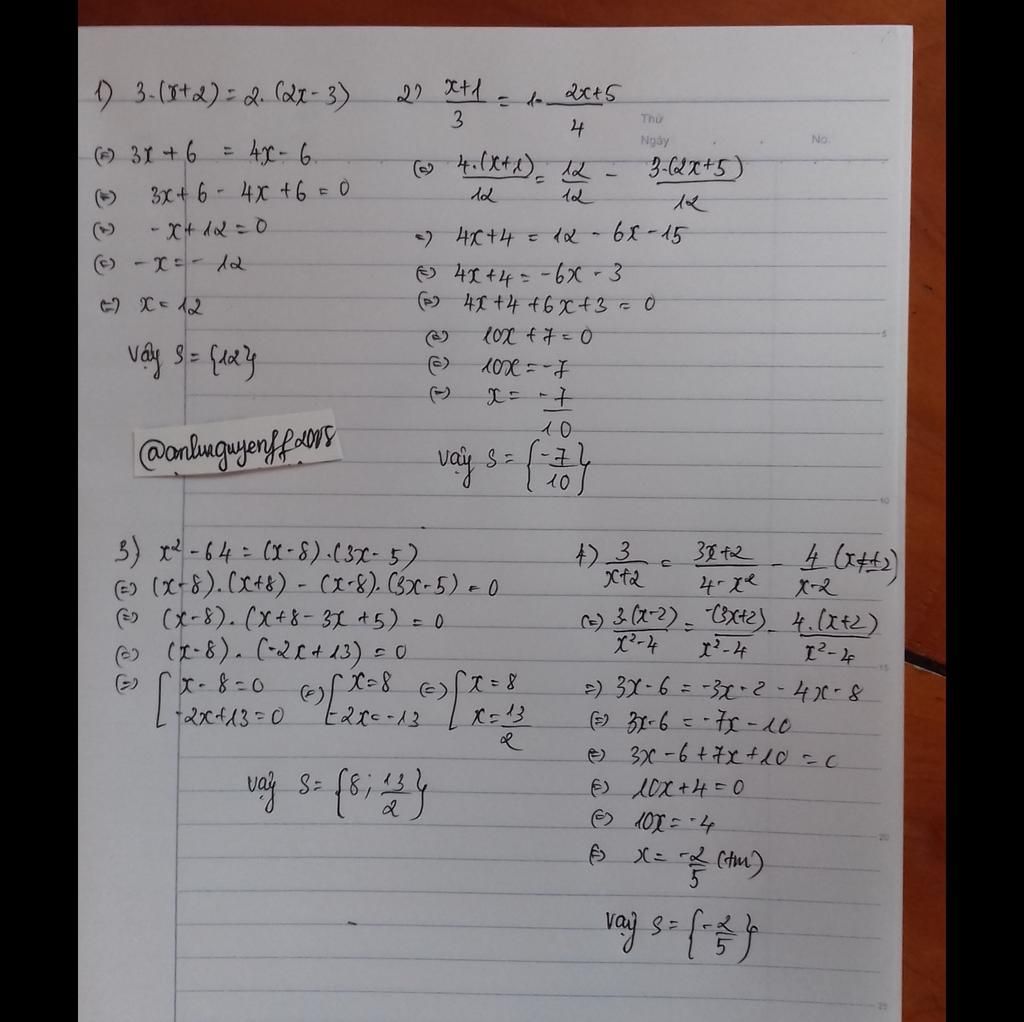 1) 3.(x+2) = 2.(2x-3)
(=) 3x+6 = 4x-6
(=) 3x+6 - 4x+6 = 0
(=) -x+12 = 0
(=) -x = -12
(=) x = 12
Vậy S = {12}
2) (x+1)/3 = 1 - (2x+5)/4
(=) 4.(x+1)/12 = 12/12 - 3.(2x+5)/12
=) 4x+4 = 12 - 6x - 15
(=) 4x+4 = -6x - 3
(=) 4x+4+6x+3 = 0
(=) 10x+7 = 0
(=) 10x = -7
(=) x = -7/10
Vậy S = {-7/10}
Thứ
Ngày
No.
3) x² - 64 = (x-8).(3x-5)
(=) (x-8).(x+8) - (x-8).(3x-5) = 0
(=) (x-8).(x+8-3x+5) = 0
(=) (x-8).(-2x+13) = 0
(=) [x-8=0 (=) [x=8 (=) [x=8
-2x+13=0 -2x=-13 x=13/2
Vậy S = {8; 13/2}
4) 3/(x+2) = (3x+2)/(4-x²) - 4/(x-2) (x≠±2)
(=) 3.(x-2)/(x²-4) = -(3x+2)/(x²-4) - 4.(x+2)/(x²-4)
=) 3x-6 = -3x-2-4x-8
(=) 3x-6 = -7x-10
(=) 3x-6+7x+10 = 0
(=) 10x+4 = 0
(=) 10x = -4
(=) x = -2/5 (tm)
Vậy S = {-2/5}
5
10
15
20
25